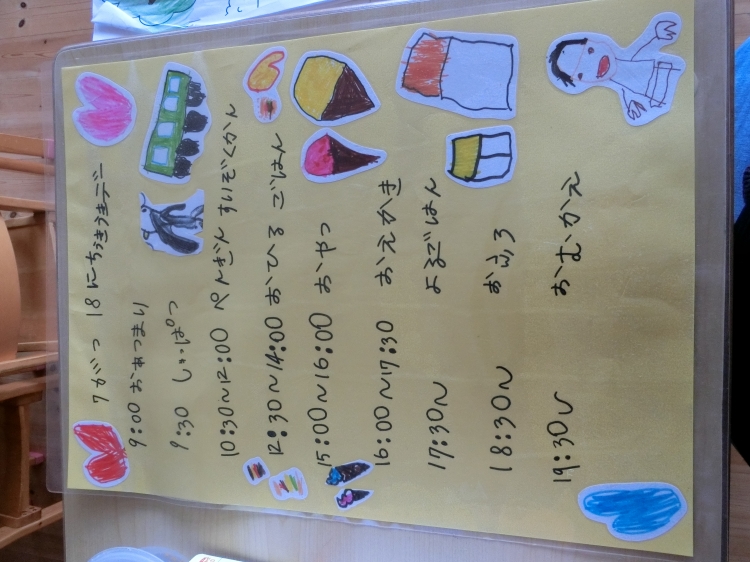 7がつ 18にちうきうきデー
9:00 おあつまり
9:30 しゅっぱつ
10:30〜12:00 ぺんぎん すいぞくかん
12:30〜14:00 おひる ごはん
15:00〜16:00 おやつ
16:00〜17:30 おえかき
17:30〜 よるごはん
18:30〜 おふろ
19:30〜 おむかえ